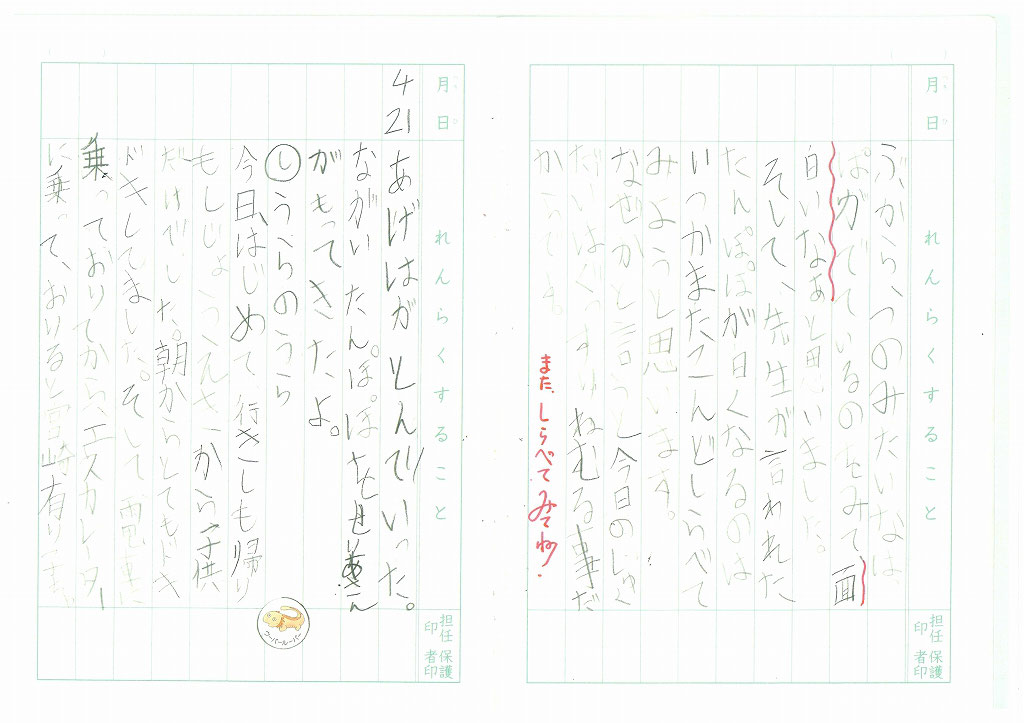 月
日
れんらくすること
ぶ、から、つのみたいなは
ぱがでているのをみて面
白いなぁと思いました。
そして、先生が言われた
たんぽぽが日くなるのは
いつかまたこんどしらべて
みようと思います。
なぜかと言うと今日のじゅく
だいはぐっすりねむる事だ
からです。
また、しらべてみてね!
担任印
保護者印
月
日
れんらくすること
4
21
あげはがとんでいった。
ながいたんぽぽをせ
がもってきたよ。
しうらのうら
今日、はじめて行きしも帰り
もしじょうえき一から子供
だけでした。朝からとてもドキ
ドキしてました。そして電車に
乗っておりてから、エスカレーター
に乗って、おりると宮崎有り
ウーパールーパー
担任印
保護者印